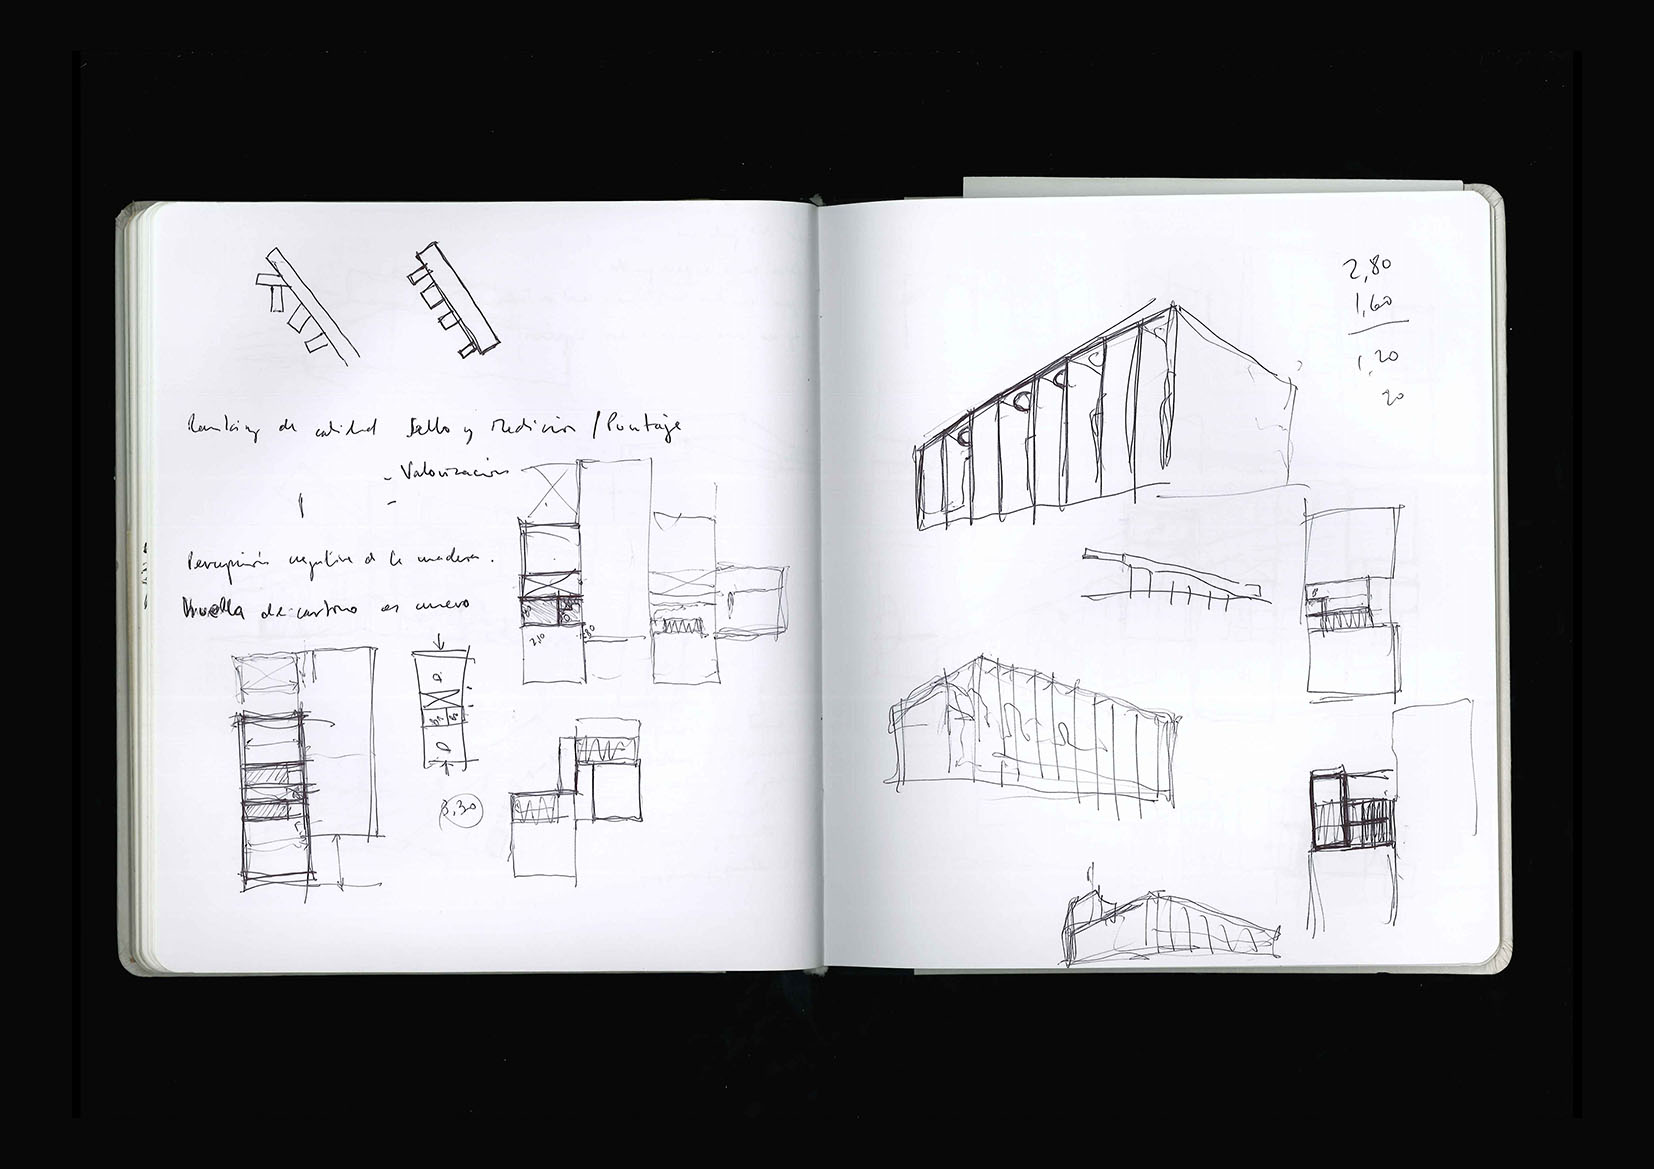 Ranking de calidad Sello y Medición / Puntaje
- Valorización
-
Percepción negativa de la madera.
Huella de carbono es
2,10
3,30
2,80
1,60
1,20
20